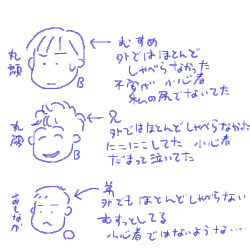 丸顔
むすめ
外ではほとんど
しゃべらなかった
不安が 小心者
私の尻でないてた
B
丸顔
兄
外ではほとんどしゃべらなかった
にこにこしてた 小心者
だまって泣いてた
B
おもなが
弟
外でもほとんどしゃべらない
むすっとしてる
小心者ではないような・・・・
O